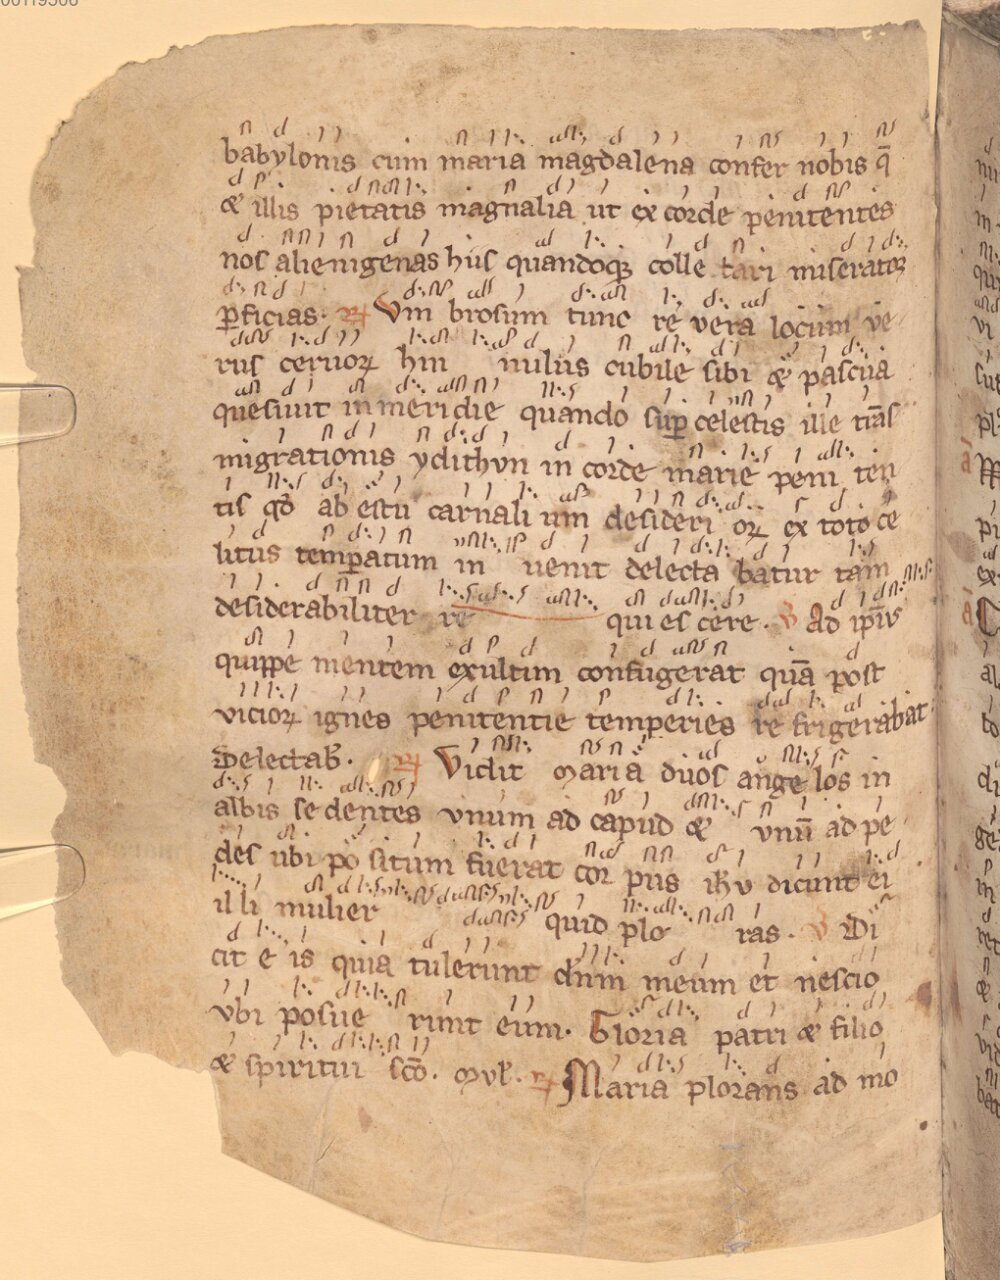 babylonis cum maria magdalena confer nobis q̄
& illis pietatis magnalia ut ex corde penitentes
nos alienigenas huis quandoqꝫ colle tari miseratoꝝ
ꝑficias. ℟ Vm brosum tunc re vera locum ve
rus ceruoꝝ hin nulus cubile sibi & pascua
quesiuit in meridie quando suꝑ celestis ille tr̄as
migrationis ydithvn in corde marie peni ten
tis qđ ab estu carnali um desideri oꝝ ex toto ce
litus temꝑatum in uenit delecta batur tam
desiderabiliter re qui es cere. ℣ Ad ipīus
quippe mentem exultim confugerat quā post
vicioꝝ ignes penitentie temperies re frigerabat
Delectab. ℟ Vidit maria duos ange los in
albis se dentes vnum ad capud & vnū ad pe
des ubi po situm fuerat cor pus ihu dicunt ei
il li mulier quid plo ras. ℣ Di
cit e is quia tulerunt dnm meum et nescio
vbi posue runt eum. Gloria patri & filio
& spiritui sco. mul. ℟ Maria plorans ad mo